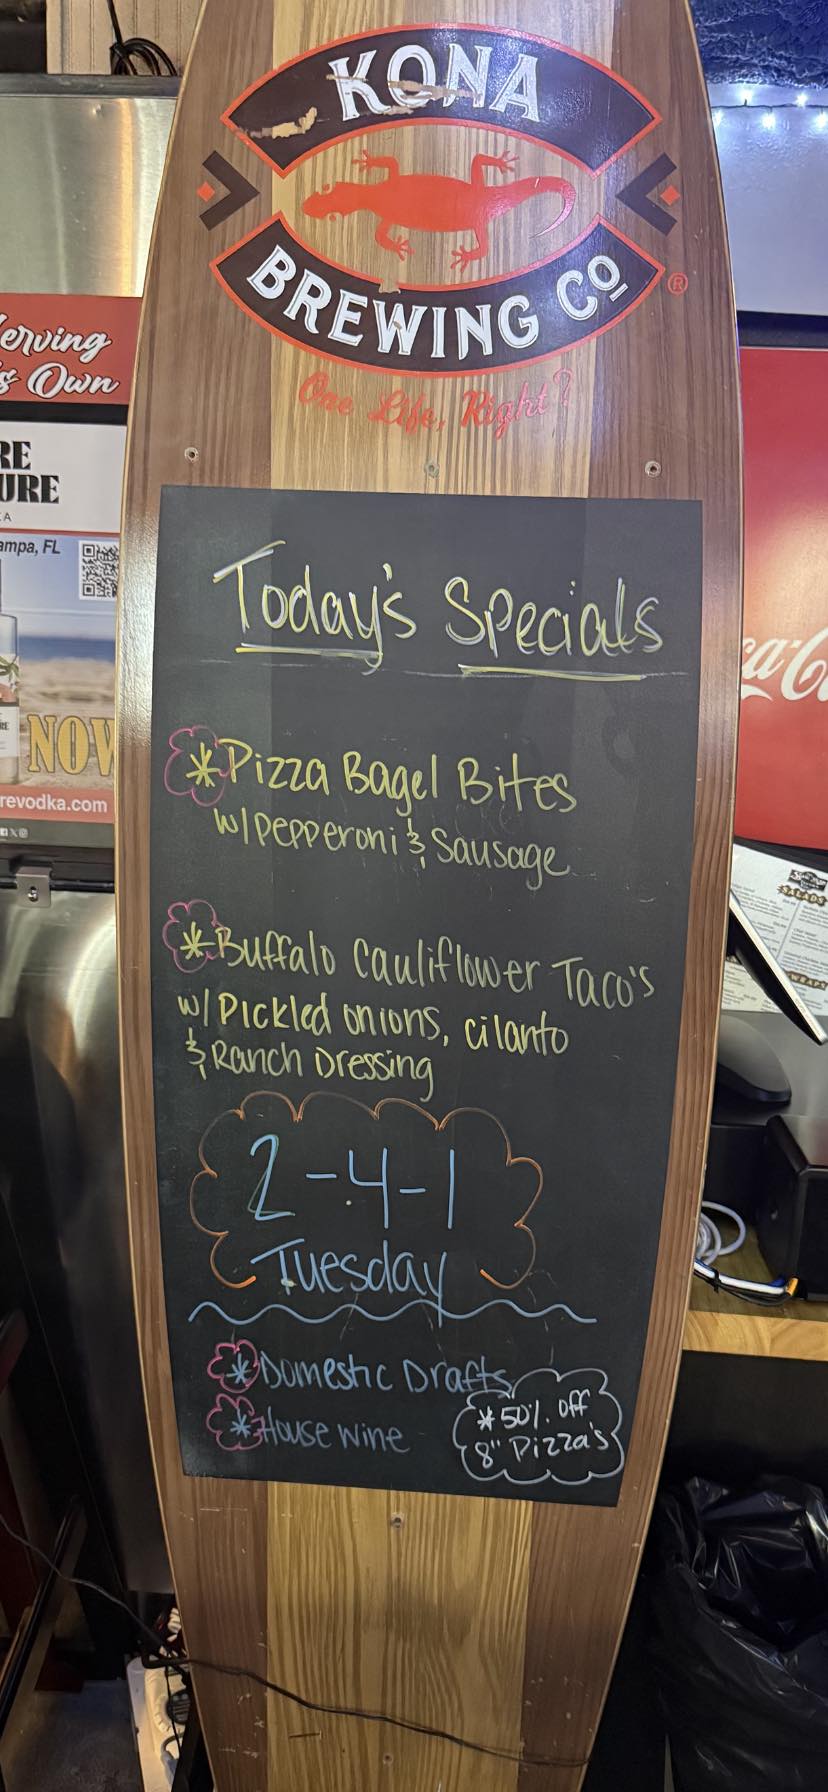 KONA
BREWING CO
®
One Life, Right?
erving
s Own
RE
URE
ampa, FL
NOW
revodka.com
Coca-Cola
SALADS
WRAPS
Today's Specials
* Pizza Bagel Bites
w/ Pepperoni & Sausage
* Buffalo Cauliflower Taco's
w/ Pickled onions, cilanto
& Ranch Dressing
2-4-1
Tuesday
* Domestic Drafts
* House wine
* 50% off
8" Pizza's